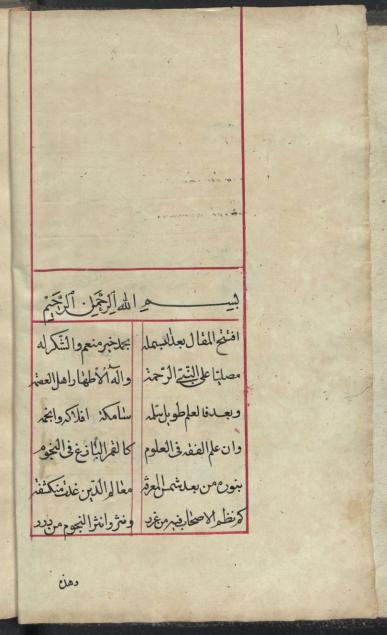 بسم الله الرحمن الرحيم
افتتح المقال بعد البسمله بحمد خير منعم والشكر له
مصليا على النبي الرحمة واله الاطهار اهل العصمة
وبعد فالعلم طويل سلمه سامكة افلاكه وانجمه
وان علم الفقه في العلوم كالقمر البازغ في النجوم
بنوره من بعد شمس المعرفة معالم الدين غدت منكشفة
كم نظم الاصحاب فيه من غرر ونثروا نثر النجوم من درر
وهذه